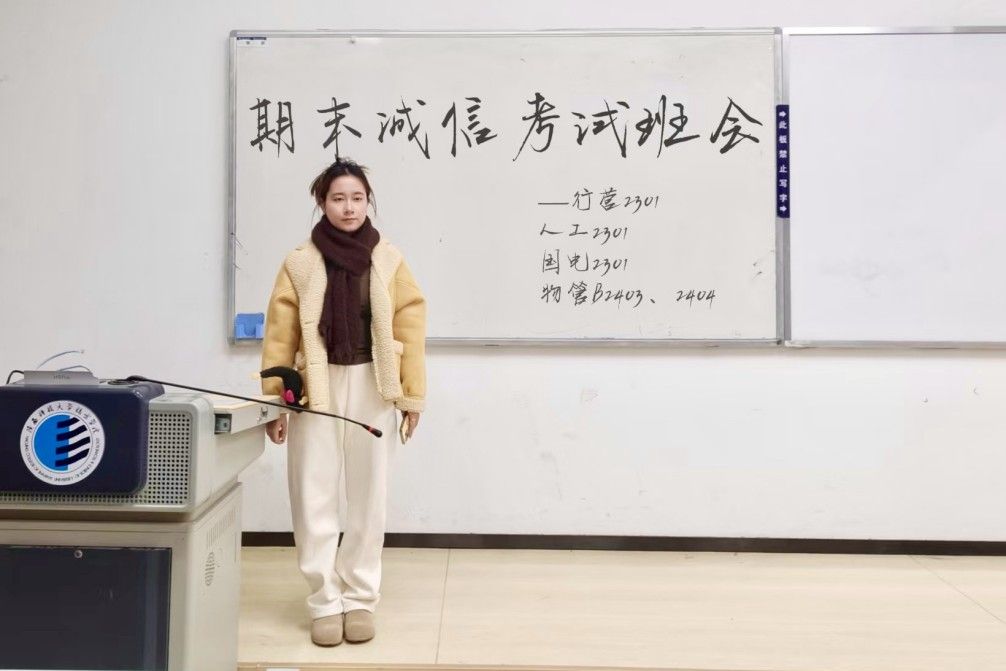 期末诚信考试班会
——行营2301
人工2301
国电2301
物管B2403、2404
→此板禁止写字→